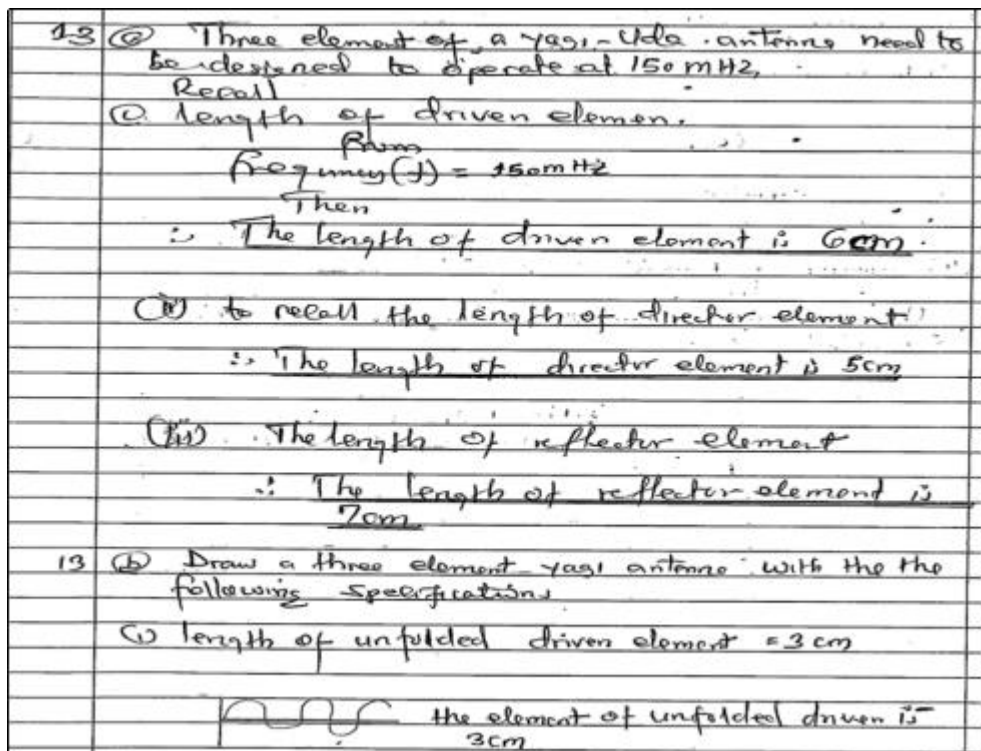 13 (a) Three element of a yagi-Uda antenna need to
be designed to operate at 150 mHz,
Recall
(i) length of driven elemen.
From
frequency (f) = 150 mHz
Then
∴ The length of driven element is 6cm.
(ii) to recall the length of director element
∴ The length of director element is 5cm
(iii) The length of reflector element
∴ The length of reflector elemend is
7cm
13 (b) Draw a three element yagi antenna with the the
following specifications
(i) length of unfolded driven element = 3 cm
the element of unfolded driven is
3cm